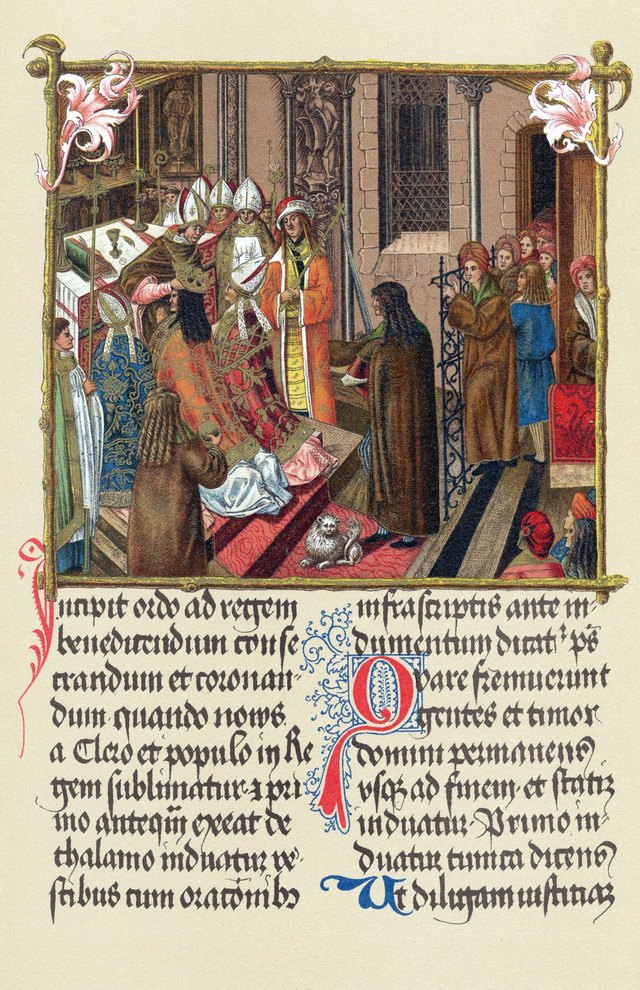 Incipit ordo ad regem
benedicendum conse
crandum et coronan-
dum quando nows
a Clero et populo in Re
gem sublimatur· ⁊ pri
mo anteq̄m exeat de
thalamo induatur ve-
stibus cum orac̄onibꝫ
infrascriptis ante in-
dumentum dicatꝛ p̄s
Qvare fremuerunt
gentes et timor
domini permanens
vsqꝫ ad finem et statiꝫ
induatur· Primo in-
duatur tunica dicens
Vt diligam iusticiaꝫ